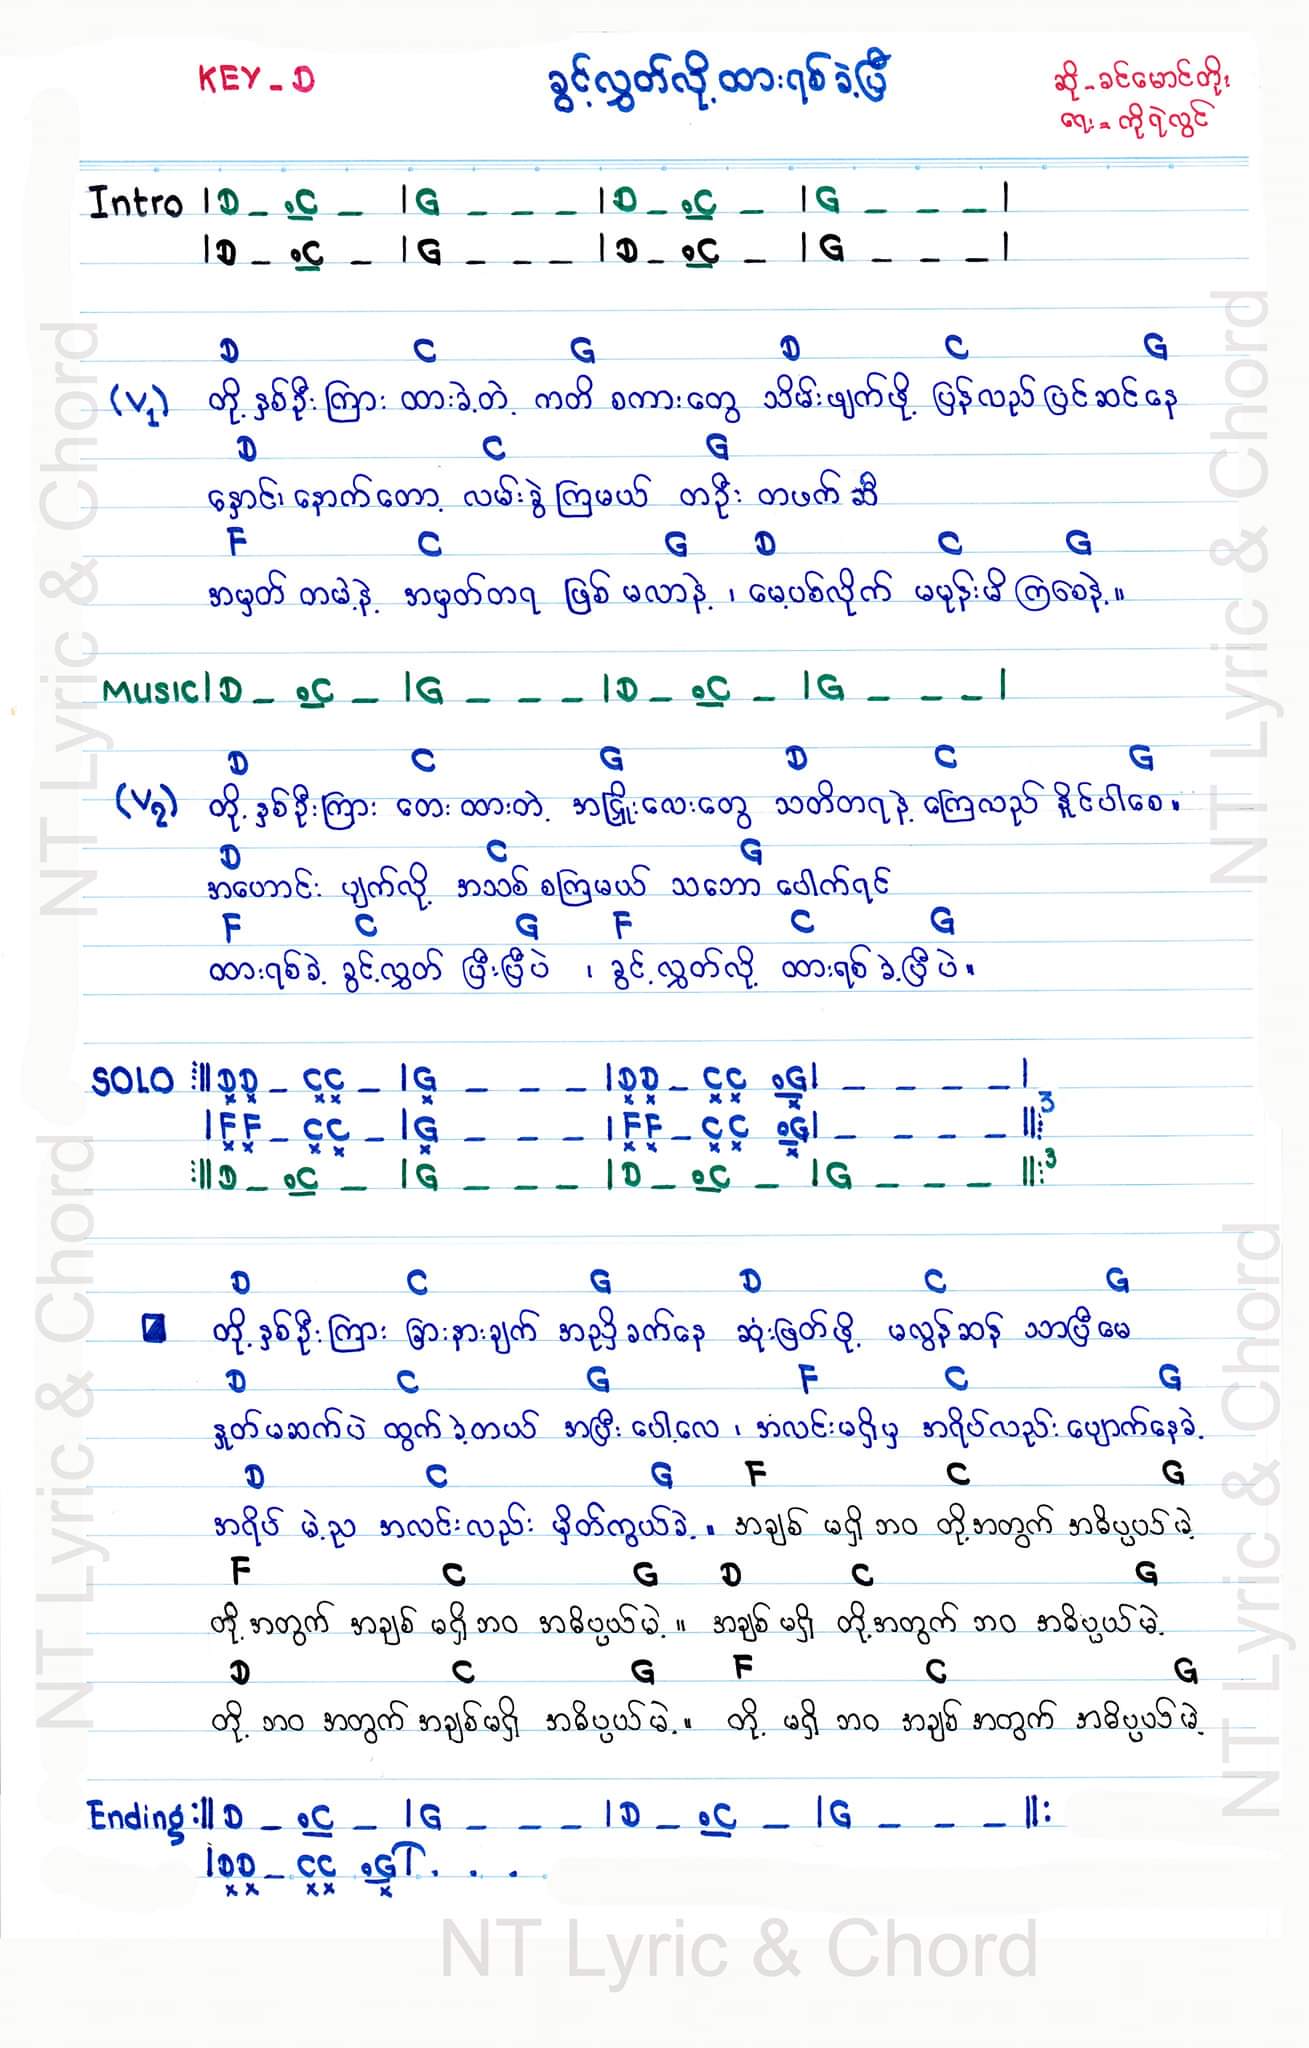 KEY - D
ခွင့်လွှတ်လို့ထားရစ်ခဲ့ပြီ
ဆို - ခင်မောင်တိုး
ရေး = ကိုရဲလွင်
Intro |D _ •C _ |G _ _ _ |D _ •C _ |G _ _ _ |
|D _ •C _ |G _ _ _ |D _ •C _ |G _ _ _ |
D C G D C G
(V1) တို့နှစ်ဦးကြား ထားခဲ့တဲ့ ကတိ စကားတွေ သိမ်းဖျက်ဖို့ ပြန်လည်ပြင်ဆင်နေ
D C G
နှောင်း၊ နောက်တော့ လမ်းခွဲကြမယ် တဦး တဖက်ဆီ
F C G D C G
အမှတ် တမဲ့နဲ့ အမှတ်တရ ဖြစ်မလာနဲ့ ၊ မေ့ပစ်လိုက် မမုန်းမိကြစေနဲ့ ။
MUSIC |D _ •C _ |G _ _ _ |D _ •C _ |G _ _ _ |
D C G D C G
(V2) တို့နှစ်ဦးကြား တေးထားတဲ့ အငြှိုးလေးတွေ သတိတရနဲ့ ကြေလည်နိုင်ပါစေ ။
D C G
အဟောင်း ပျက်လို့ အသစ်စကြမယ် သဘော ပေါက်ရင်
F C G F C G
ထားရစ်ခဲ့ ခွင့်လွှတ် ပြီးပြီပဲ ၊ ခွင့်လွှတ်လို့ ထားရစ်ခဲ့ပြီပဲ ။
SOLO :||DD _ CC _ |G _ _ _ |DD _ CC •G| _ _ _ _ |
|FF _ CC _ |G _ _ _ |FF _ CC •G| _ _ _ _ ||: 3
:||D _ •C _ |G _ _ _ |D _ •C _ |G _ _ _ ||: 3
D C G D C G
တို့နှစ်ဦးကြား ခြားနားချက် အညှိခက်နေ ဆုံးဖြတ်ဖို့ မလွန်ဆန်သာပြီမေ
D C G F C G
နှုတ်မဆက်ပဲ ထွက်ခဲ့တယ် အပြီးပေါ့လေ ၊ အလင်းမရှိမှ အရိပ်လည်းပျောက်နေခဲ့
D C G F C G
အရိပ် မဲ့ည အလင်းလည်း မှိတ်ကွယ်ခဲ့ ။ အချစ် မရှိ ဘဝ တို့အတွက် အဓိပ္ပယ်မဲ့
F C G D C G
တို့အတွက် အချစ် မရှိဘဝ အဓိပ္ပယ်မဲ့ ။ အချစ်မရှိ တို့အတွက် ဘဝ အဓိပ္ပယ်မဲ့
D C G F C G
တို့ ဘဝ အတွက် အချစ်မရှိ အဓိပ္ပယ်မဲ့ ။ တို့ မရှိ ဘဝ အချစ်အတွက် အဓိပ္ပယ်မဲ့
Ending :||D _ •C _ |G _ _ _ |D _ •C _ |G _ _ _ ||:
|DD _ CC •G . . .
NT Lyric & Chord
NT Lyric & Chord
NT Lyric & Chord
NT Lyric & Chord
NT Lyric & Chord